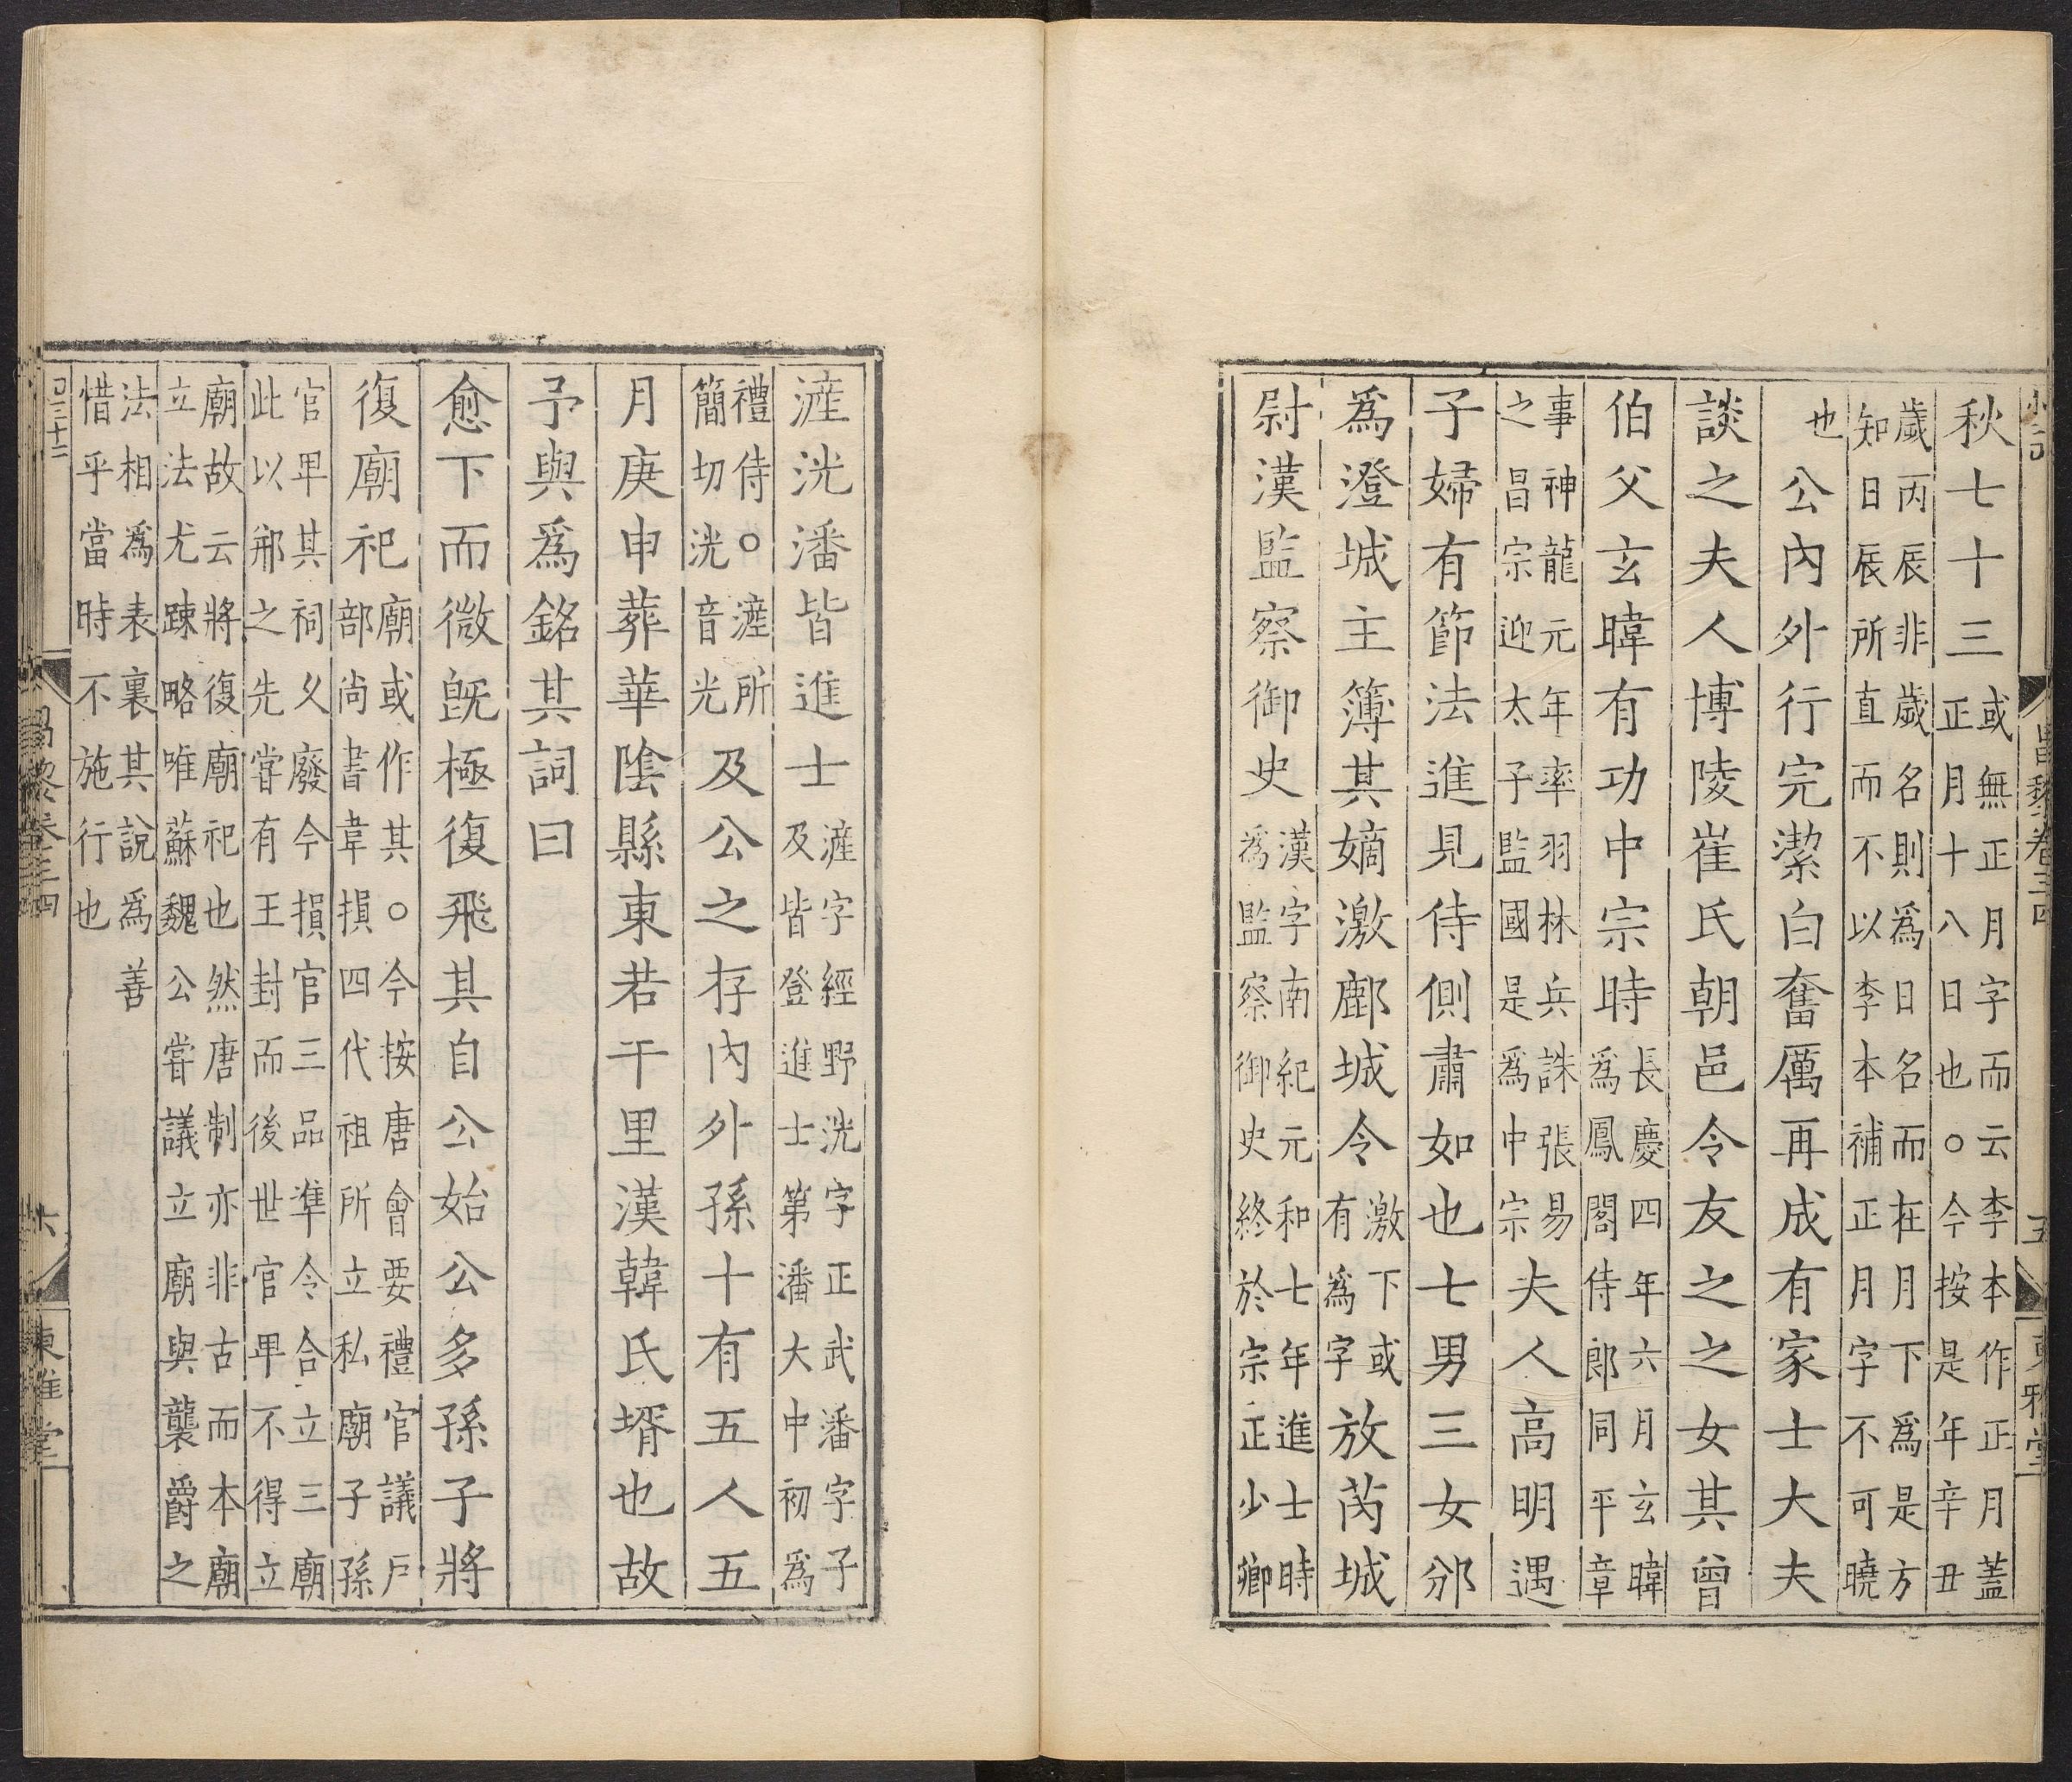 昌黎卷三四　五　東雅堂
秋七十三或無正月字而云李本作正月蓋正月十八日也○今按是年辛丑
歲丙辰非歲名則爲日名而在月下爲是方知日辰所直而不以李本補正月字不可曉
也公內外行完潔白奮厲再成有家士大夫
談之夫人博陵崔氏朝邑令友之之女其曾
伯父玄暐有功中宗時長慶四年六月玄暐爲鳳閣侍郎同平章
事神龍元年率羽林兵誅張易之昌宗迎太子監國是爲中宗夫人高明遇
子婦有節法進見侍側肅如也七男三女邠
爲澄城主簿其嫡激鄜城令激下或有爲字放芮城
尉漢監察御史漢字南紀元和七年進士時爲監察御史終於宗正少卿
漄洸潘皆進士漄字經野洸字正武潘字子及皆登進士第潘大中初爲
禮侍○漄所簡切洸音光及公之存內外孫十有五人五
月庚申葬華陰縣東若干里漢韓氏壻也故
予與爲銘其詞曰
愈下而微旣極復飛其自公始公多孫子將
復廟祀廟或作其○今按唐會要禮官議戶部尚書韋損四代祖所立私廟子孫
官卑其祠久廢今損官三品準令合立三廟此以邢之先嘗有王封而後世官卑不得立
廟故云將復廟祀也然唐制亦非古而本廟立法尤踈略唯蘇魏公嘗議立廟與襲爵之
法相爲表裏其說爲善惜乎當時不施行也
昌黎卷三四　六　東雅堂